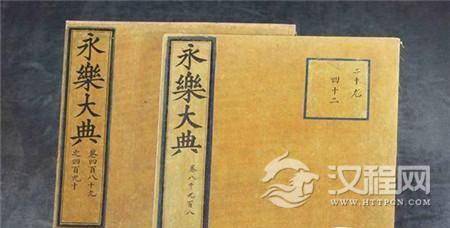 永樂大典
卷四百八十九
之四百九十
永樂大典
卷八千九百八
二十尤
四十二
汉程网
WWW.HTTPCN.COM